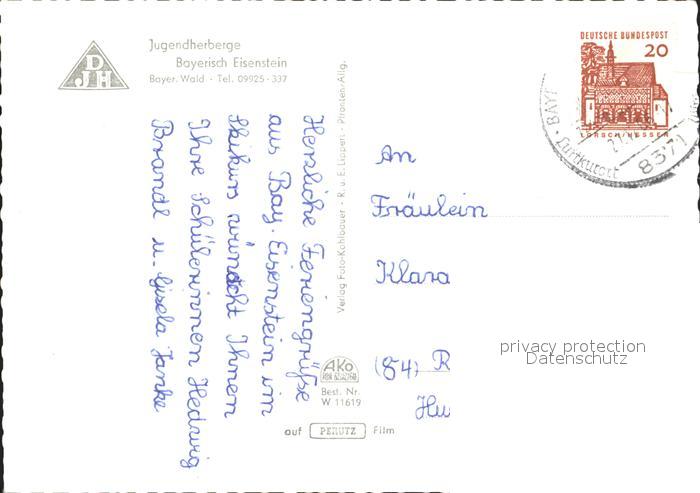 DJH
Jugendherberge
Bayerisch Eisenstein
Bayer. Wald · Tel. 09925 - 337
Herzliche Feriengrüße
aus Bay. Eisenstein im
Skikurs wünscht Ihnen
Ihre Schülerinnen Hedwig
Brandl u. Gisela Janke
Verlag Foto-Kohlbauer - R. u. E. Lippert - Pfronten/Allg.
DEUTSCHE BUNDESPOST
20
LORSCH/HESSEN
BAY
Luftkurort
8371
An
Fräulein
Klara
(84) R
Hu
privacy protection
Datenschutz
AKO
Best. Nr.
W 11619
auf PERUTZ Film